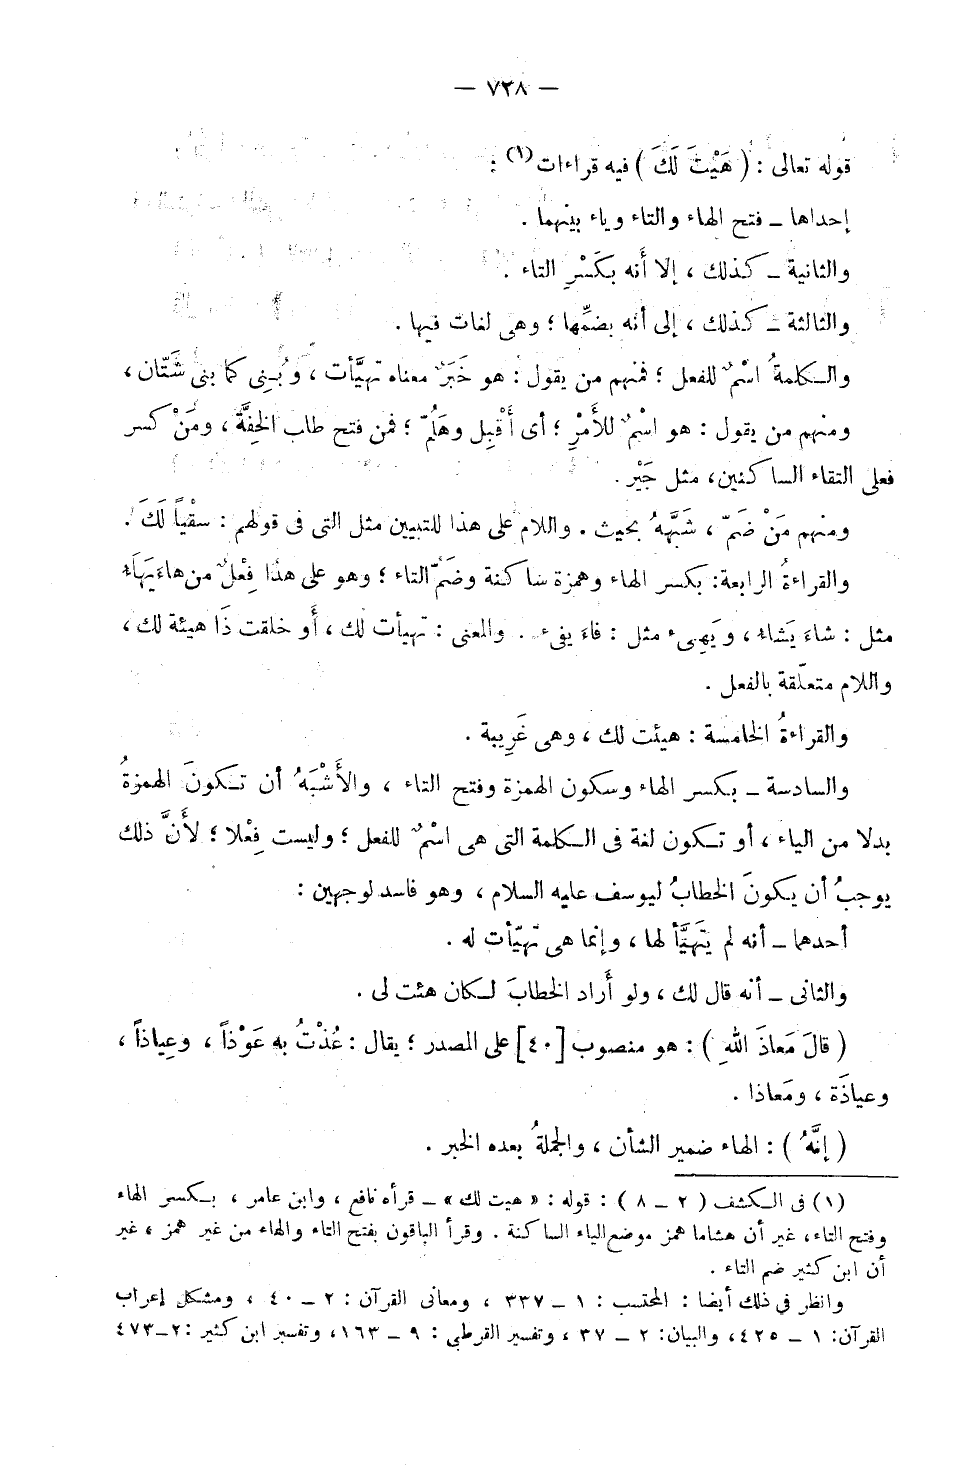 — ٧٢٨ —
قوله تعالى : ( هَيْتَ لَكَ ) فيه قراءات (١) :
إحداها ــ فتح الهاء والتاء وياء بينهما .
والثانية ــ كذلك ، إلا أنه بكَسْرِ التاء .
والثالثة ــ كذلك ، إلى أنه بضمِّها ؛ وهى لغات فيها .
والكلمةُ اسْمٌ للفعل ؛ فمنهم من يقول : هو خَبَرٌ معناه تهيَّأت ، وبُنِى كما بنى شَتّان ،
ومنهم من يقول : هو اسْمٌ للأَمْرِ ؛ أى أَقْبِل وهَلُمّ ؛ فمن فتح طلب الخِفَّة ، ومَنْ كسر
فعلى التقاء الساكنين، مثل جَيْرِ .
ومنهم مَنْ ضَمّ ، شَبَّهَهُ بحيث . واللام على هذا للتبيين مثل التى فى قولهم : سقْياً لَكَ .
والقراءةُ الرابعة: بكسر الهاء وهمزة ساكنة وضَمّ التاء ؛ وهو على هذا فِعْلٌ من هاءَ يَهَاءُ
مثل : شاءَ يَشاء ، ويَهِىء مثل : فاءَ يفىء . والمعنى : تهيأت لك ، أو خلقت ذَا هيئة لك ،
واللام متعلّقة بالفعل .
والقراءةُ الخامسة : هيئت لك ، وهى غَرِيبة .
والسادسة ــ بكسر الهاء وسكون الهمزة وفتح التاء ، والأَشْبَهُ أن تكونَ الهمزةُ
بدلا من الياء ، أو تكون لغة فى الكلمة التى هى اسْمٌ للفعل ؛ وليست فِعْلا ؛ لأَنَّ ذلك
يوجبُ أن يكونَ الخطابُ ليوسف عليه السلام ، وهو فاسد لوجهين :
أحدهما ــ أنه لم يَتَهَيَّأ لها ، وإنما هى تهيّأت له .
والثانى ــ أنه قال لك ، ولو أَراد الخطابَ لكان هئت لى .
( قالَ مَعاذَ اللهِ ) : هو منصوب [٤٠] على المصدر ؛ يقال : عُذْتُ به عَوْذاً ، وعِياذاً ،
وعياذَة ، ومَعاذا .
( إنَّهُ ) : الهاء ضمير الشأن ، والجملةُ بعده الخبر .
(١) فى الكشف ( ٢ ــ ٨ ) : قوله : « هيت لك » ــ قرأه نافع ، وابن عامر ، بكسر الهاء
وفتح التاء، غير أن هشاما همز موضع الياء الساكنة . وقرأ الباقون بفتح التاء والهاء من غير همز ، غير
أن ابن كثير ضم التاء .
وانظر فى ذلك أيضا : المحتسب : ١ ــ ٣٣٧ ، ومعانى القرآن : ٢ ــ ٤٠ ، ومشكل إعراب
القرآن: ١ ــ ٤٢٥، والبيان: ٢ ــ ٣٧ ، وتفسير القرطبى : ٩ ــ ١٦٣، وتفسير ابن كثير :٢ــ٤٧٣